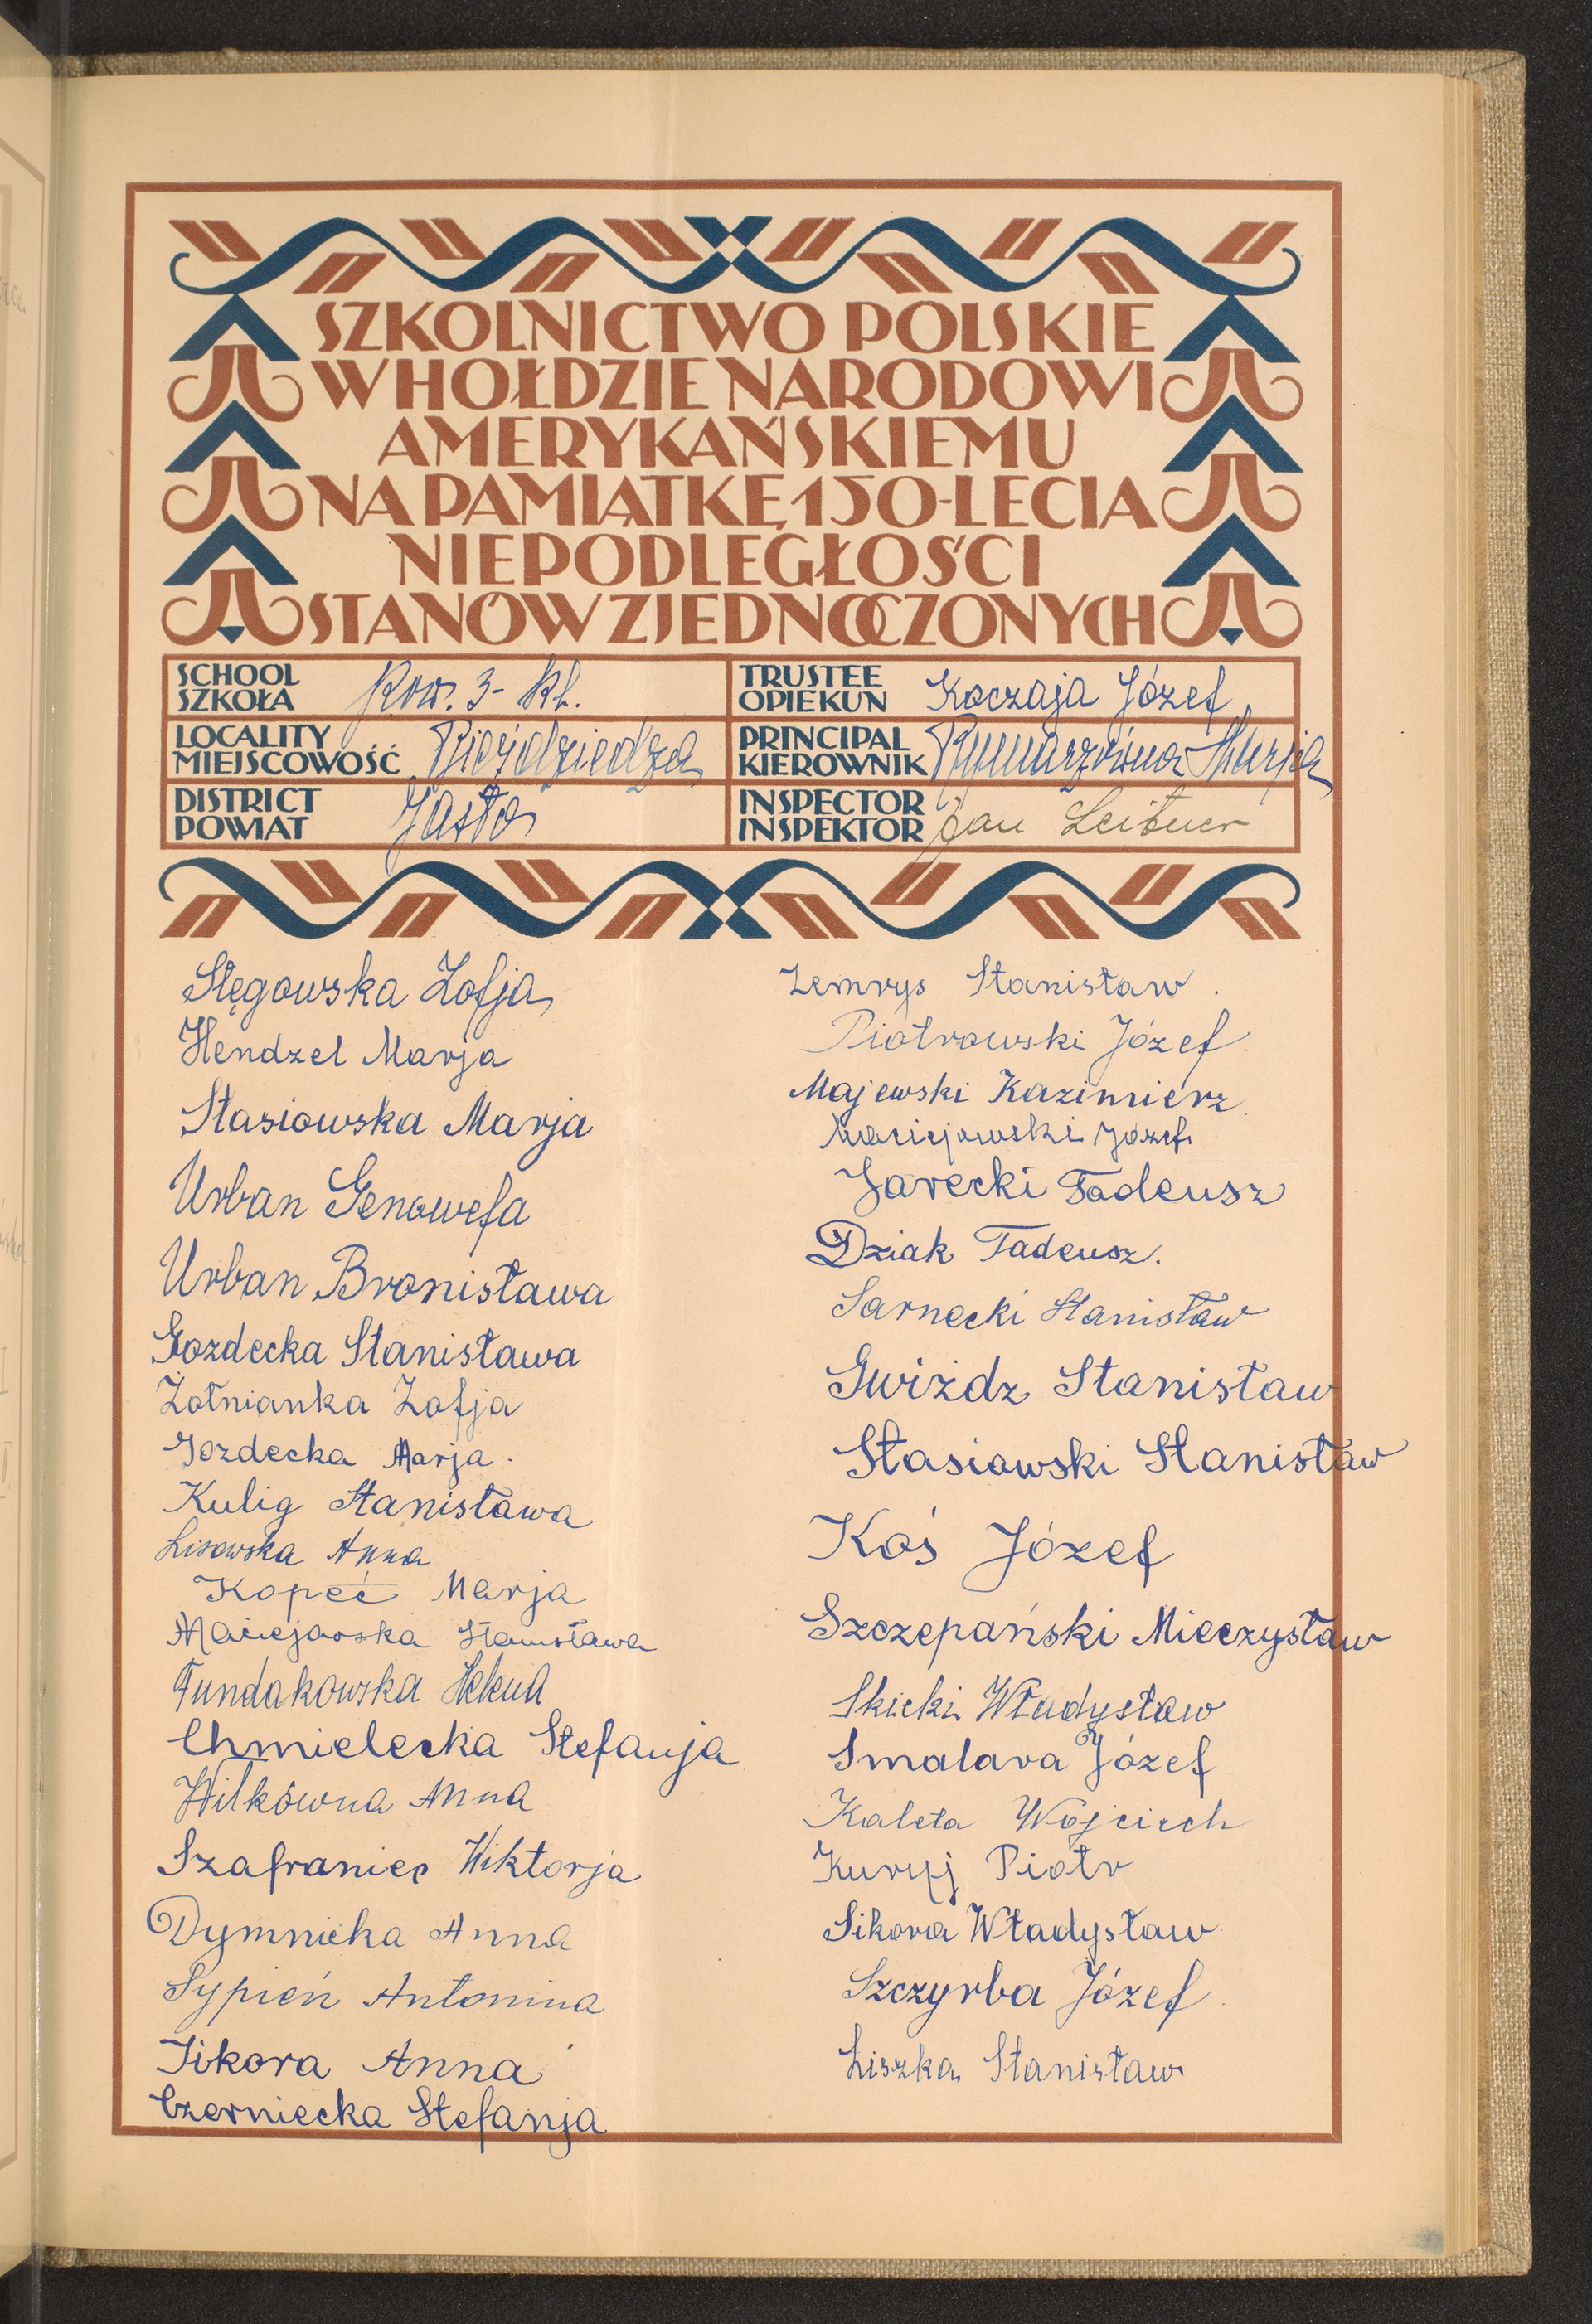 SZKOLNICTWO POLSKIE
W HOŁDZIE NARODOWI
AMERYKAŃSKIEMU
NA PAMIĄTKĘ 150-LECIA
NIEPODLEGŁOŚCI
STANÓW ZJEDNOCZONYCH
SCHOOL
SZKOŁA
Pow. 3-kl.
TRUSTEE
OPIEKUN
Koczaja Józef
LOCALITY
MIEJSCOWOŚĆ
Bieździedza
PRINCIPAL
KIEROWNIK
Rymarzówna Marja
DISTRICT
POWIAT
Jasło
INSPECTOR
INSPEKTOR
Jan Leibner
Stęgowska Zofja
Hendzel Marja
Stasiowska Marja
Urban Genowefa
Urban Bronisława
Gozdecka Stanisława
Żołnianka Zofja
Gozdecka Marja.
Kulig Stanisława
Lisowska Anna
Kopeć Marja
Maciejowska Stanisława
Fundakowska Helena
Chmielecka Stefanja
Wilkówna Anna
Szafraniec Wiktorja
Dymnicka Anna
Sypień Antonina
Sikora Anna
Czerniecka Stefanja
Zemrys Stanisław.
Piotrowski Józef
Majewski Kazimierz
Maciejowski Józef
Jarecki Tadeusz
Dziak Tadeusz.
Sarnecki Stanisław
Gwiżdz Stanisław
Stasiowski Stanisław
Koś Józef
Szczepański Mieczysław
Skicki Władysław
Smalara Józef
Kaleta Wojciech
Kuryj Piotr
Sikora Władysław
Szczyrba Józef
Liszka Stanisław